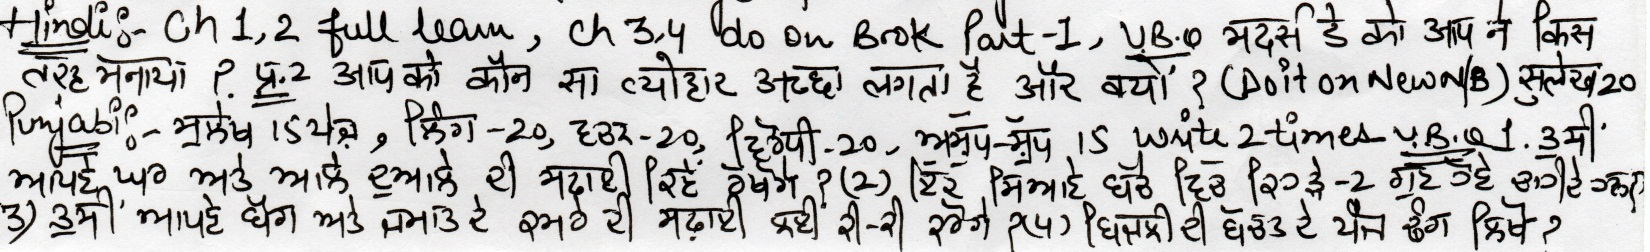 Hindi:- Ch 1,2 full learn, ch 3,4 do on Book Part-1, V.B.Q मदर्स डे को आप ने किस
तरह मनाया ? प्र.2 आप को कौन सा त्योहार अच्छा लगता है और क्यों ? (Do it on New N/B) सुलेख 20
Punjabi:- ਸੁਲੇਖ 15 ਪੇਜ਼, ਲਿੰਗ -20, ਵਚਨ -20, ਵਿਰੋਧੀ -20, ਅਸ਼ੁੱਧ-ਸ਼ੁੱਧ 15 write 2 times V.B.Q 1. ਤੁਸੀਂ
ਆਪਣੇ ਘਰ ਅਤੇ ਆਲੇ ਦੁਆਲੇ ਦੀ ਸਫ਼ਾਈ ਕਿਵੇਂ ਰੱਖੋਗੇ ? (2) ਇੱਕ ਸਿਆਣੇ ਬੱਚੇ ਵਿੱਚ ਕਿਹੜੇ-2 ਗੁਣ ਹੋਣੇ ਚਾਹੀਦੇ ਹਨ?
3) ਤੁਸੀਂ ਆਪਣੇ ਬੈਗ ਅਤੇ ਜਮਾਤ ਦੇ ਕਮਰੇ ਦੀ ਸਫ਼ਾਈ ਲਈ ਕੀ-ਕੀ ਕਰੋਗੇ ? (4) ਬਿਜਲੀ ਦੀ ਬੱਚਤ ਦੇ ਪੰਜ ਢੰਗ ਲਿਖੋ ?